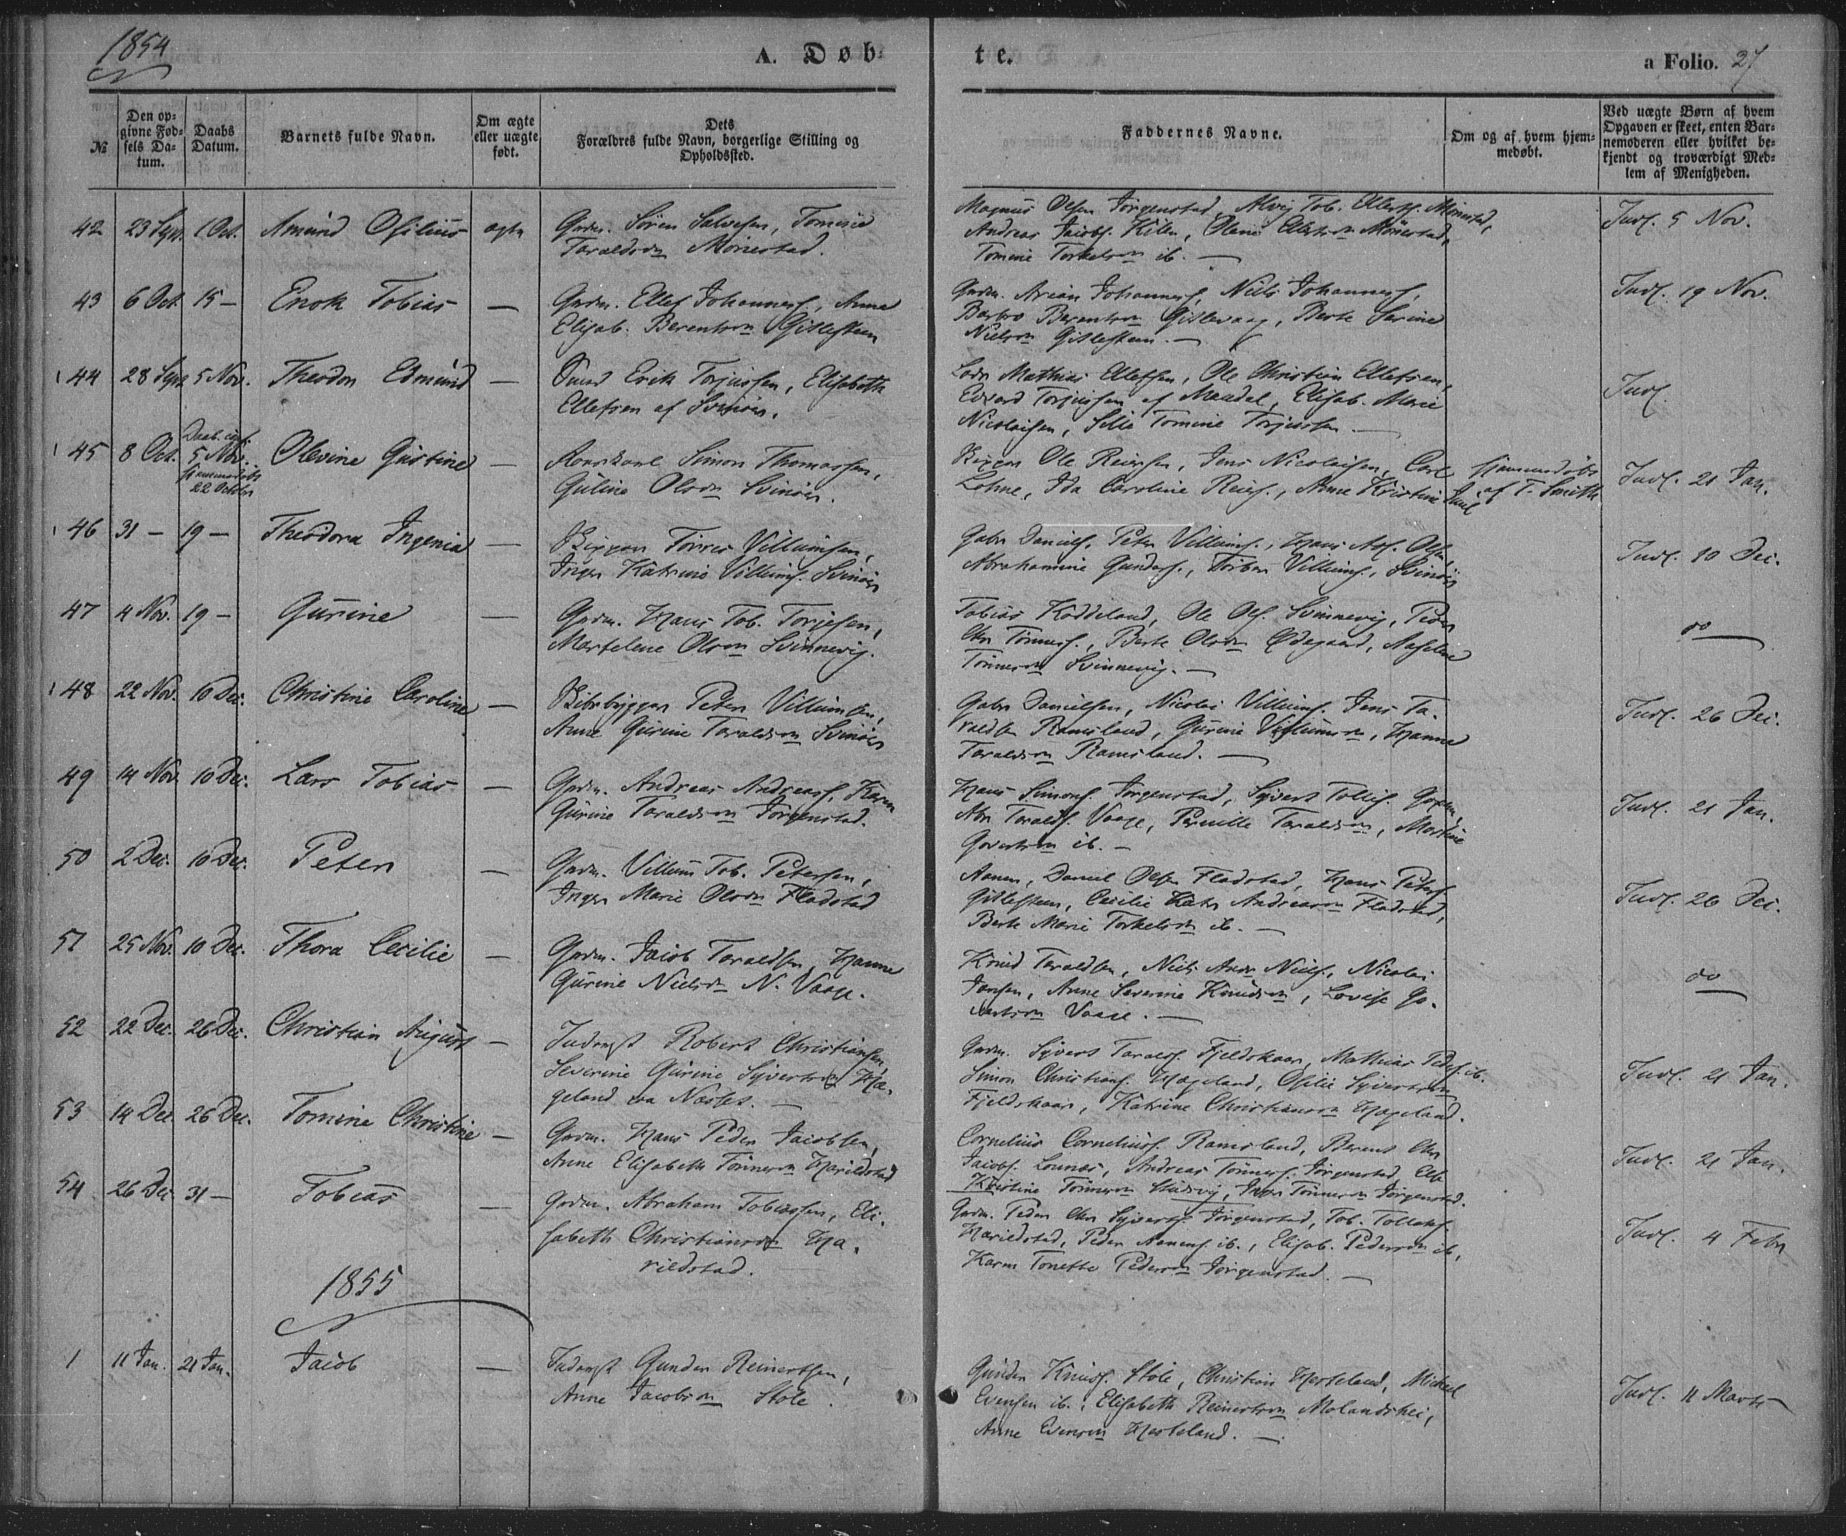 1854
A. Døb-
te.
a Folio. 27
№
Den op-
givne Fød-
sels Da-
tum.
Daabs
Datum.
Barnets fulde Navn.
Om ægte
eller uægte
født.
Dets
Forældres fulde Navn, borgerlige Stilling og
Opholdssted.
Faddernes Navne.
Om og af hvem hjem-
medøbt.
Ved uægte Børn af hvem
Opgaven er skeet, enten Bar-
nemoderen eller hvilket be-
kjendt og troværdigt Med-
lem af Menigheden.
42 23 Sept. 1 Oct. Amünd Osilius ægte
Grdm. Sören Salvesen, Tomine
Taraldsdn Mönestad.
Magnus Olsen Jörgenstad, Alvig Tob. Mönestad,
Andreas Jacobs. Kile, Olene Mönestad,
Tomine Torkelsdn ib. —
Indl. 5 Nov.
43 6 Oct. 15 — Enok Tobias —
Grdm. Ellef Johannes., Anne
Elisab. Berentsdn Gitlesteen
Grdm. Arian Johannes., Niels Johannes.,
Barbro Berentsdn Gitlevaag, Berte Serine
Nielsdn Gitlesteen. —
Indl. 19 Nov.
44 28 Sept. 5 Nov. Theodor Edmünd —
Smed Erik Torjussen, Elisabeth
Ellefsen af Svinöer.
Lods Mathias Ellefsen, Ole Christian Ellefsen,
Edvard Torjussen af Mandal, Elisab. Marie
Nicolaisen, Sille Tomine Torjussen —
Indl.
45 8 Oct. 5 Nov. Olevine Gustine —
hjemmedöbt
22 October
Simon Thomassen,
Guline Olsdn Svinöer.
Skipper Ole Reiersen, Jens Nicolaisen, Carl
Lohne, Ida Caroline Reiers., Anne Kristine Juul
hjemmedöbt
af T. Smith
Indl. 21 Jan.
46 31 — 19 — Theodora Ingenia —
Skipper Törres Villumsen,
Inger Katrine Villums. Svinöer
Gabr. Daniels. Peter Villums., Hans Olsen
Abrahamine Gunders., Villums., Svinöer
Indl. 10 Dec.
47 4 Nov. 19 — Gurine —
Grdm. Hans Tob. Torjesen,
Martelene Olsdn Svinnevig.
Tobias Koddeland, Ole Ols. Svinnevig, Peder
Chr Tönnes., Berte Olsdn Ödegaard, Aselene
Tönnesdn Svinnevig. —
do
48 22 Nov. 10 Dec. Christine Caroline —
Skibsbygger Peter Villumsen,
Anne Gurine Taraldsdn Svinöer
Gabr Danielsen, Nicolai Villums. Jens Ta-
raldsen Ramsland, Gurine Villumsdn, Hanne
Taraldsdn Ramsland. —
Indl. 26 Dec.
49 14 Nov 10 Dec. Lars Tobias —
Grdm. Andreas Andreas., Karen
Gurine Taraldsdn Jörgenstad.
Hans Simons. Jörgenstad, Syvert Tollefs.
Abr Taralds. Vaage, Pernille Taraldsdn,
Govertsdn ib. —
Indl. 21 Jan.
50 2 Dec. 10 Dec. Peter —
Grdm. Villum Tob. Petersen,
Inger Marie Olsdn Fladstad
Aanen, Daniel Olsen Fladstad, Hans Peters.
Gitlesteen, Cecilie Andreasdn Fladstad,
Berte Marie Torkelsdn ib. —
Indl. 26 Dec.
51 25 Nov. 10 Dec. Thora Cecilie —
Grdm. Jacob Taraldsen, Hanne
Gurine Nielsdn N. Vaage.
Knud Taraldsen, Niels Andr Niels., Nicolai
Jansen, Anne Severine Knudsdn, Lovise Go-
vertsdn Vaage. —
do
52 22 Dec. 26 Dec. Christian August —
Inderst Robert Christiansen,
Severine Gurine Syvertsdn Ha-
geland paa Næsset. —
Grdm. Syvert Taralds. Fjeldskaar, Mathias Peders. ib.
Simon Christians. Hageland, Osilie Syvertsdn
Fjeldskaar, Katrine Christiansdn Hageland.
Indl. 21 Jan.
53 14 Dec. 26 Dec. Tomine Christine —
Grdm. Hans Peder Jacobsen,
Anne Elisabeth Tönnesdn Harildstad
Cornelius Cornelius. Ramsland, Berent Chr
Jacobs. Andreas Tönnes. Jörgenstad, Elb
Kristine Tönnesdn Tönnesdn Jörgenstad.
Indl. 21 Jan.
54 26 Dec 31 — Tobias —
Grdm. Abraham Tobiassen, Eli-
sabeth Christiansdn Ha-
rildstad.
Grdm. Peder Chr Syverts. Jörgenstad, Tob. Tollaks.
Harildstad, Peder Aanens. ib., Elisab. Pedersdn ib.,
Karen Tonette Pedersdn Jörgenstad. —
Indl. 4 Febr
1855
1 11 Jan. 21 Jan. Jacob —
Inderst Gunder Reinertsen,
Anne Jacobsdn Stöle.
Gunder Knuds. Stöle, Christian Hesteland, Mickel
Evensen ib., Elisabeth Reinertsdn Molandshei,
Anne Evensdn Hesteland. —
Indl. 11 Marts